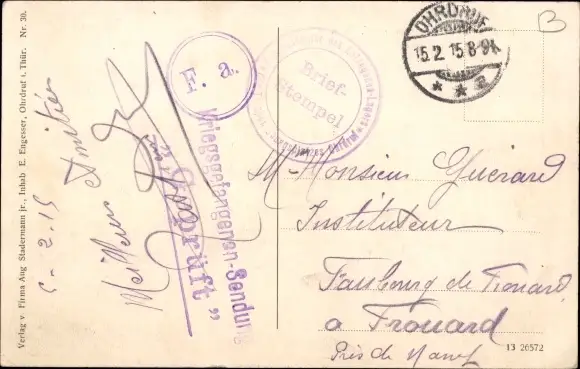 Verlag v. Firma Aug Stadermann jr., Inhab E. Engesser, Ohrdruf i. Thür. Nr. 30.
6-2.15
Meilleures Amitiés
F. a.
Kriegsgefangenen-Sendung
Geprüft"
Brief-
Stempel
OHRDRUF
15.2.15.8-9V.
* * a
B
M- Monsieur Guérard
Instituteur
Faubourg de Frouard
à Frouard
Près de Nancy
13 26572